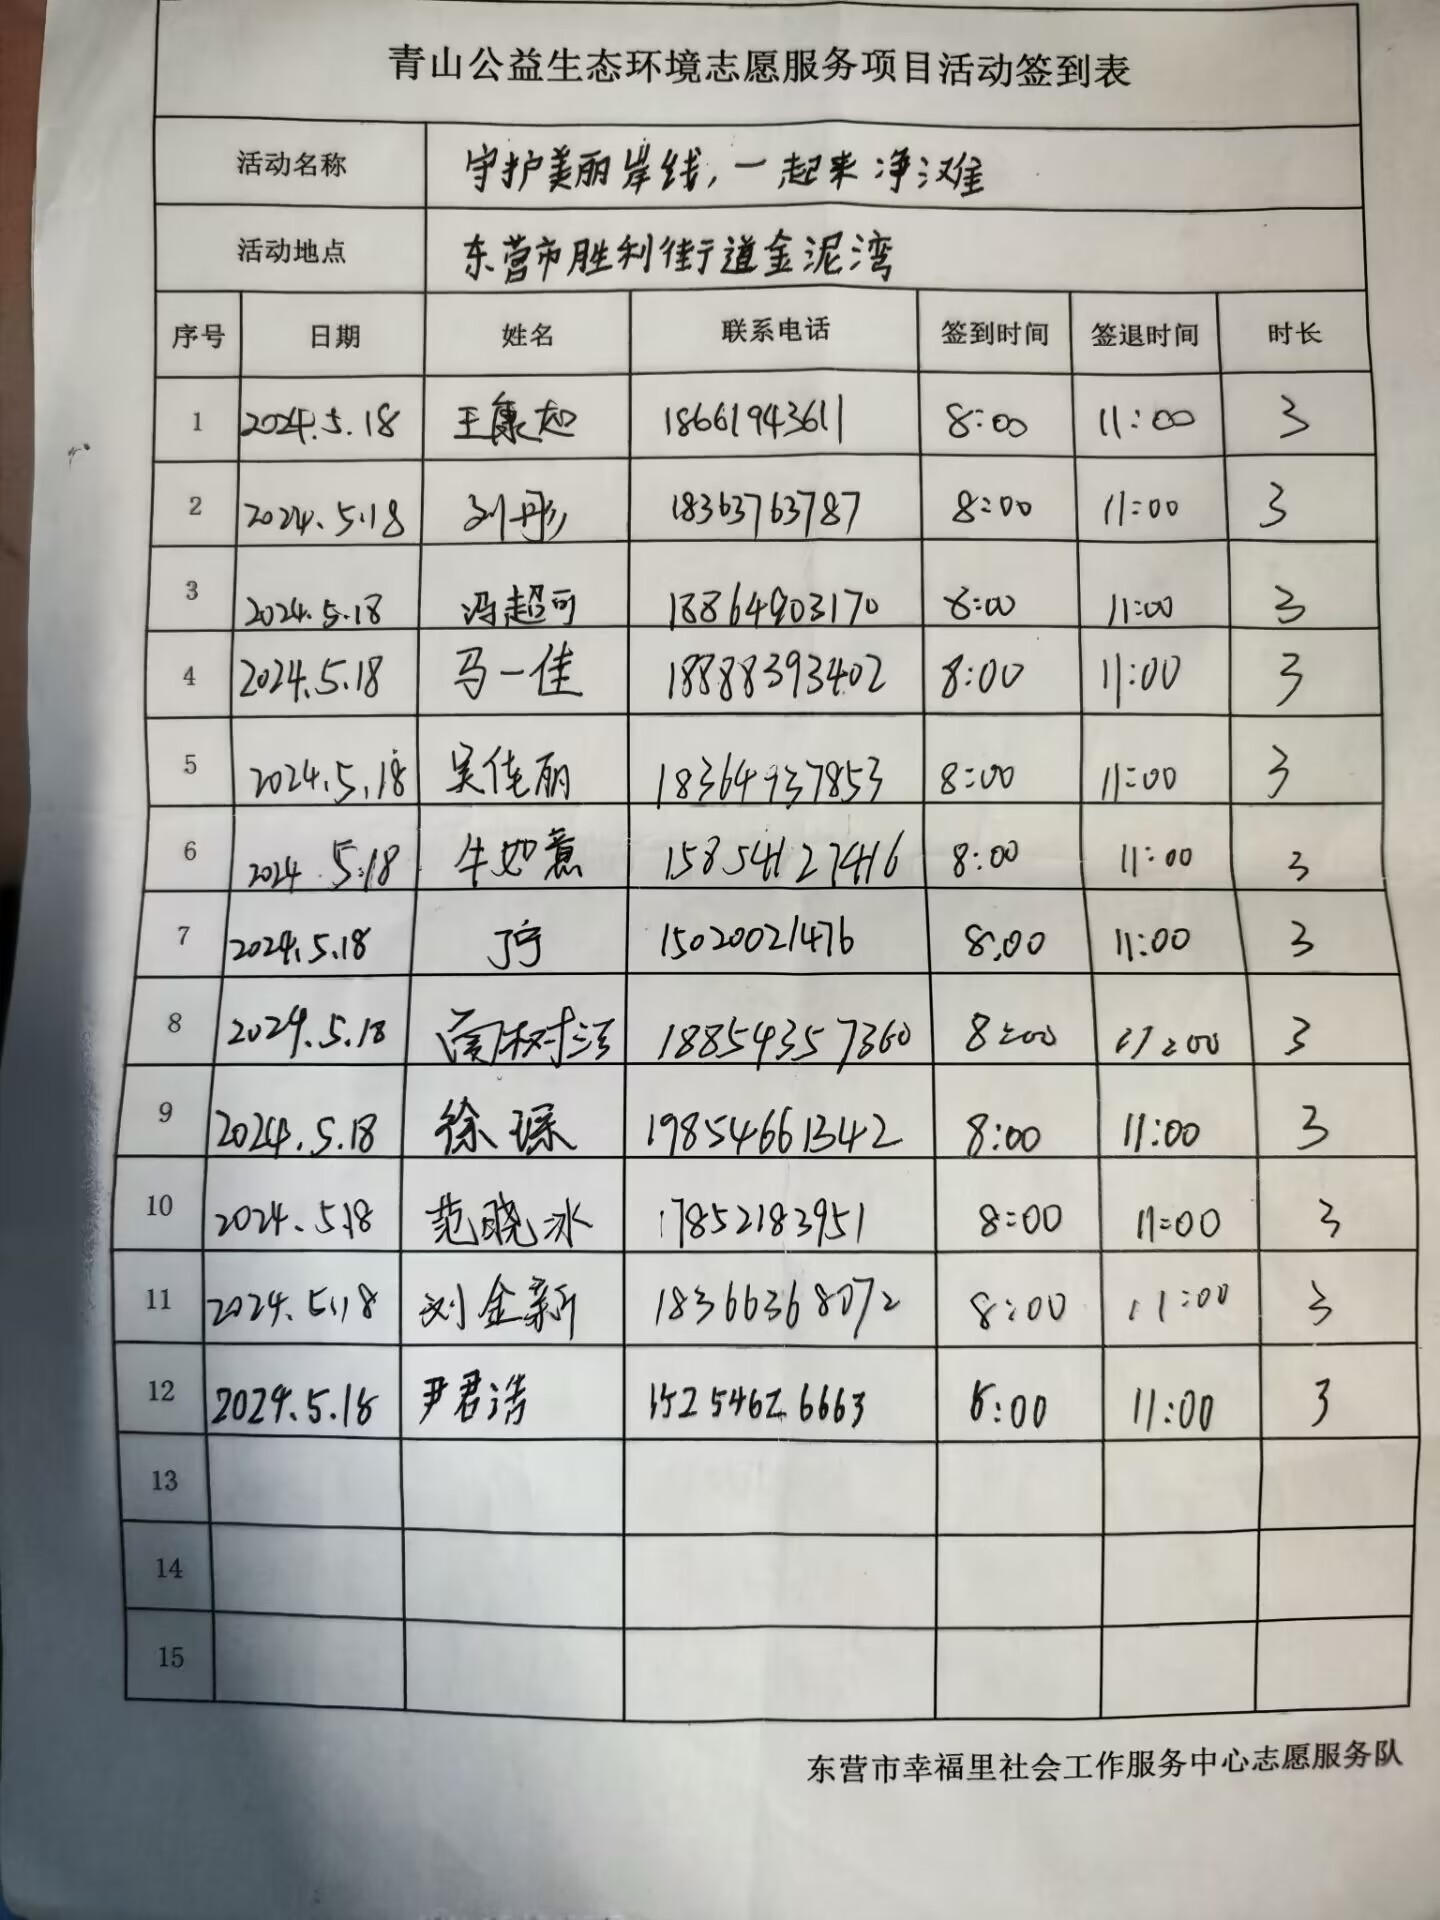 青山公益生态环境志愿服务项目活动签到表
活动名称 守护美丽岸线,一起来净滩
活动地点 东营市胜利街道金泥湾
序号 日期 姓名 联系电话 签到时间 签退时间 时长
1 2024.5.18 王康起 18661943611 8:00 11:00 3
2 2024.5.18 刘彤 18363763787 8:00 11:00 3
3 2024.5.18 冯超可 18864903170 8:00 11:00 3
4 2024.5.18 马一佳 18888393402 8:00 11:00 3
5 2024.5.18 吴佳丽 18364937853 8:00 11:00 3
6 2024 5.18 牛如意 15854127416 8:00 11:00 3
7 2024.5.18 丁宁 15020021476 8:00 11:00 3
8 2024.5.18 18854357360 8:00 11:00 3
9 2024.5.18 徐琛 19854661342 8:00 11:00 3
10 2024.5.18 范晓冰 17852183951 8:00 11:00 3
11 2024.5.18 刘金新 18366368072 8:00 11:00 3
12 2024.5.18 尹君浩 15254626663 8:00 11:00 3
13
14
15
东营市幸福里社会工作服务中心志愿服务队